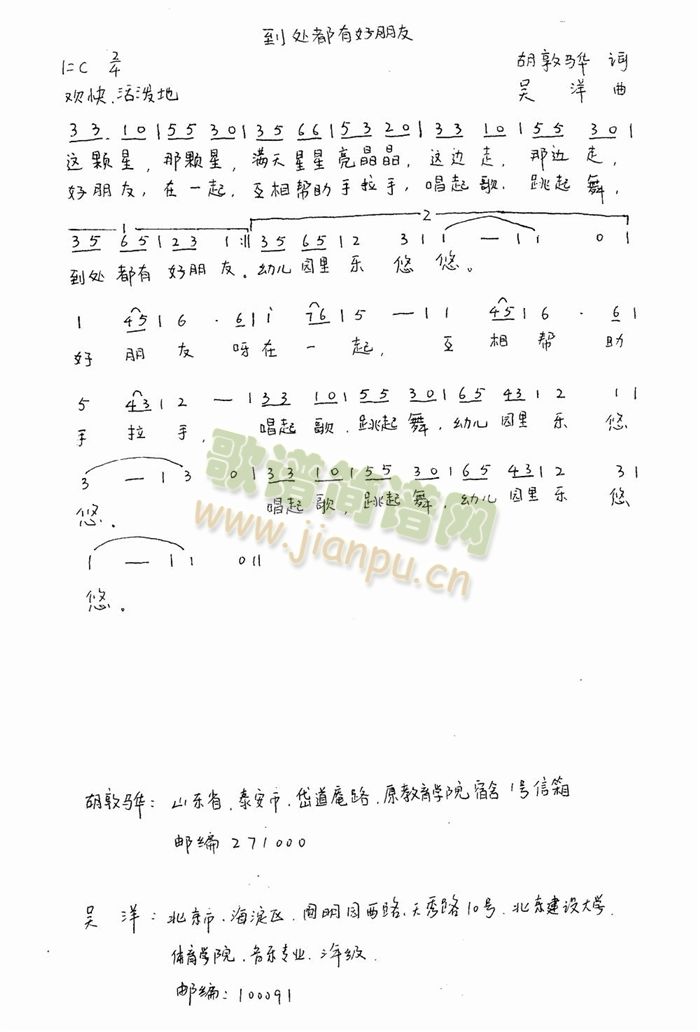 到处都有好朋友
1=C 2/4
胡敦骅 词
欢快、活泼地
吴 洋 曲
3 3. 1 0 | 5 5 3 0 | 3 5 6 6 | 5 3 2 0 | 3 3 1 0 | 5 5 3 0 |
这颗星，那颗星，满天星星亮晶晶，这边走，那边走，
好朋友，在一起，互相帮助手拉手，唱起歌，跳起舞，
1 2
3 5 6 5 | 2 3 1 :|| 3 5 6 5 | 2 3 | 1 — | 1 0 |
到处都有好朋友。幼儿园里乐悠悠。
1 4 5 | 6 . 6 | i 7 6 | 5 — | 1 4 5 | 6 . 6 |
好朋友呀在一起，互相帮助
5 4 3 | 2 — | 3 3 1 0 | 5 5 3 0 | 6 5 4 3 | 2 1 |
手拉手，唱起歌，跳起舞，幼儿园里乐悠
3 — | 3 0 | 3 3 1 0 | 5 5 3 0 | 6 5 4 3 | 2 3 |
悠。唱起歌，跳起舞，幼儿园里乐悠
i — | i 0 ||
悠。
歌谱简谱网
www.jianpu.cn
胡敦骅：山东省、泰安市、岱道庵路、原教育学院宿舍1号信箱
邮编 271000
吴 洋：北京市、海淀区、圆明园西路、天秀路10号、北京建设大学、
体育学院、音乐专业、三年级
邮编：100091